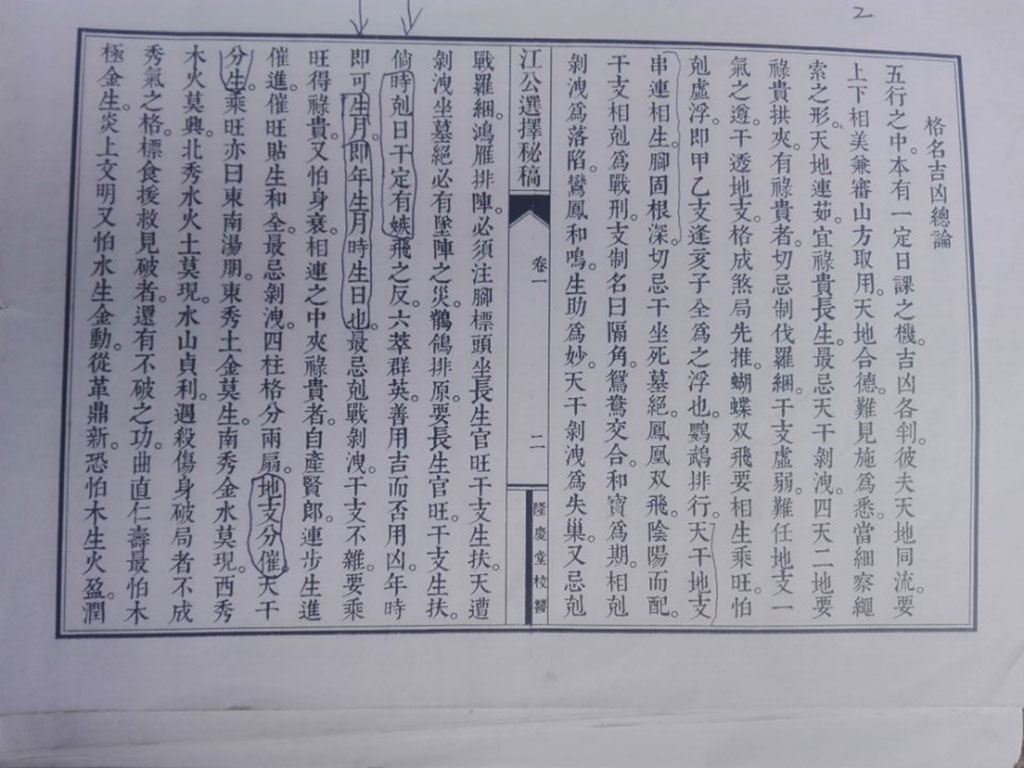 2
格名吉凶總論
五行之中。本有一定日課之機。吉凶各判。彼夫天地同流。要
上下相美兼審山方取用。天地合德。難見施為悉。當細察繩
索之形。天地連茹。宜祿貴長生。最忌天干剝洩。四天二地要
祿貴拱夾。有祿貴者。切忌制伐羅綑。干支虛弱。難任地支一
氣之遵。干透地支。格成煞局先推。蝴蝶双飛。要相生乘旺。怕
剋虛浮。即甲乙支逢亥子全為之浮也。鸚鵡排行。天干地支
串連相生。腳固根深。切忌干坐死墓絕。鳳凰双飛。陰陽而配。
干支相剋為戰刑。支制名曰隔角。鴛鴦交合。和寶為期。相剋
剝洩為落陷。鸞鳳和鳴。生助為妙。天干剝洩為失巢。又忌剋
江公選擇秘稿
卷一
二
隆慶堂校
戰羅綑。鴻雁排陣。必須注腳標頭坐長生官旺干支生扶。天遭
剝洩坐墓絕必有墜陣之災。鶺鴒排原。要長生官旺。干支生扶。
倘時剋日干定有嫉飛之反。六萃群英。善用吉而否用凶。年時
即可生月。即年生月時生日也。最忌剋戰剝洩。干支不雜。要乘
旺得祿貴。又怕身衰。相連之中夾祿貴者。自產賢郎。連步生進
催進。催旺貼生和全。最忌剝洩。四柱格分兩扇。地支分催。天干
分生。乘旺亦曰東南湯朋。東秀土金莫生。南秀金水莫現。西秀
木火莫興。北秀水火土莫現。水山貞利。遇殺傷身破局者不成
秀氣之格。標食援救見破者。還有不破之功。曲直仁壽最怕木
極金生。炎上文明又怕水生金動。從革鼎新。恐怕木生火盈。潤